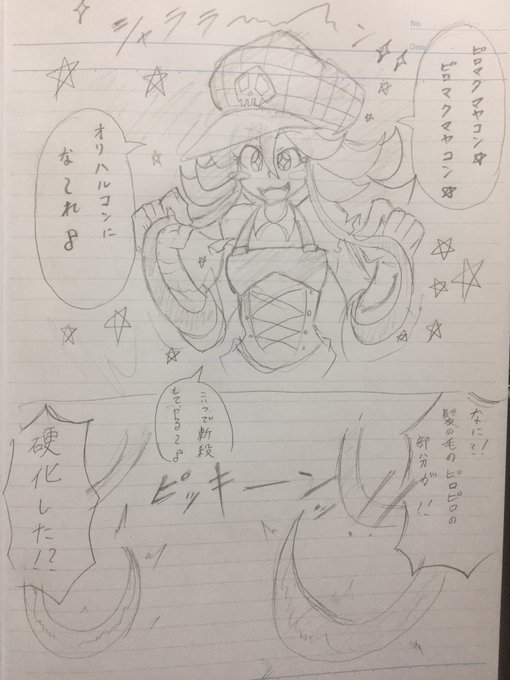 シャララ〜〜ン
No.
Date
ピロマクマヤコン☆
ピロマクマヤコン☆
オリハルコンに
なぁれ♪
こいつで斬殺
してやる♪
なに!?
髪の毛のピロピロの
部分が!!
ピッキーン
硬化した!?